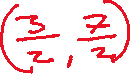 (3/2, 7/2)